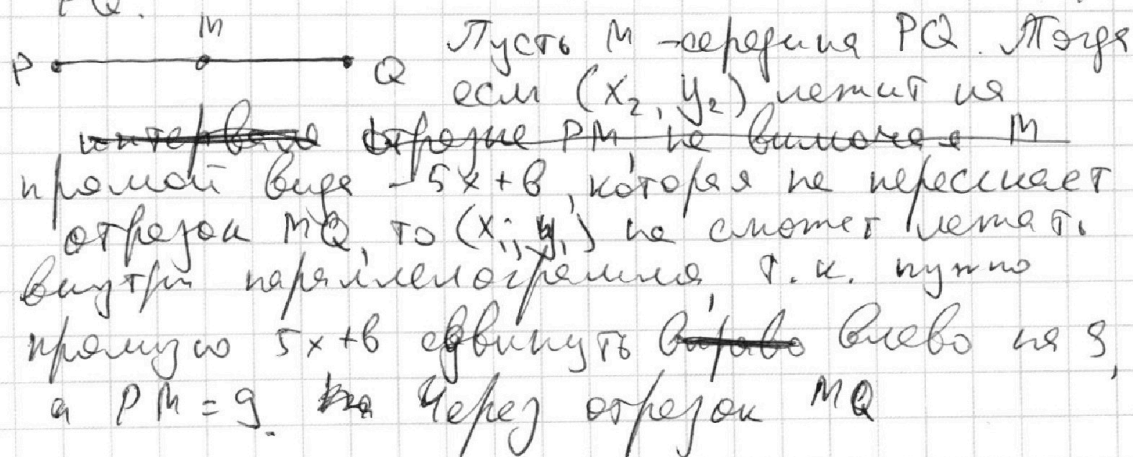 PQ.
P M Q Пусть M - середина PQ. Тогда
если (x₂, y₂) лежит на
интервале отрезке PM, не включая M
прямой вида -5x+b, которая не пересекает
отрезок MQ, то (x₁; y₁) не сможет лежать
внутри параллелограмма, т.к. нужно
прямую 5x+b сдвинуть вправо влево на 9,
а PM = 9. Через отрезок MQ